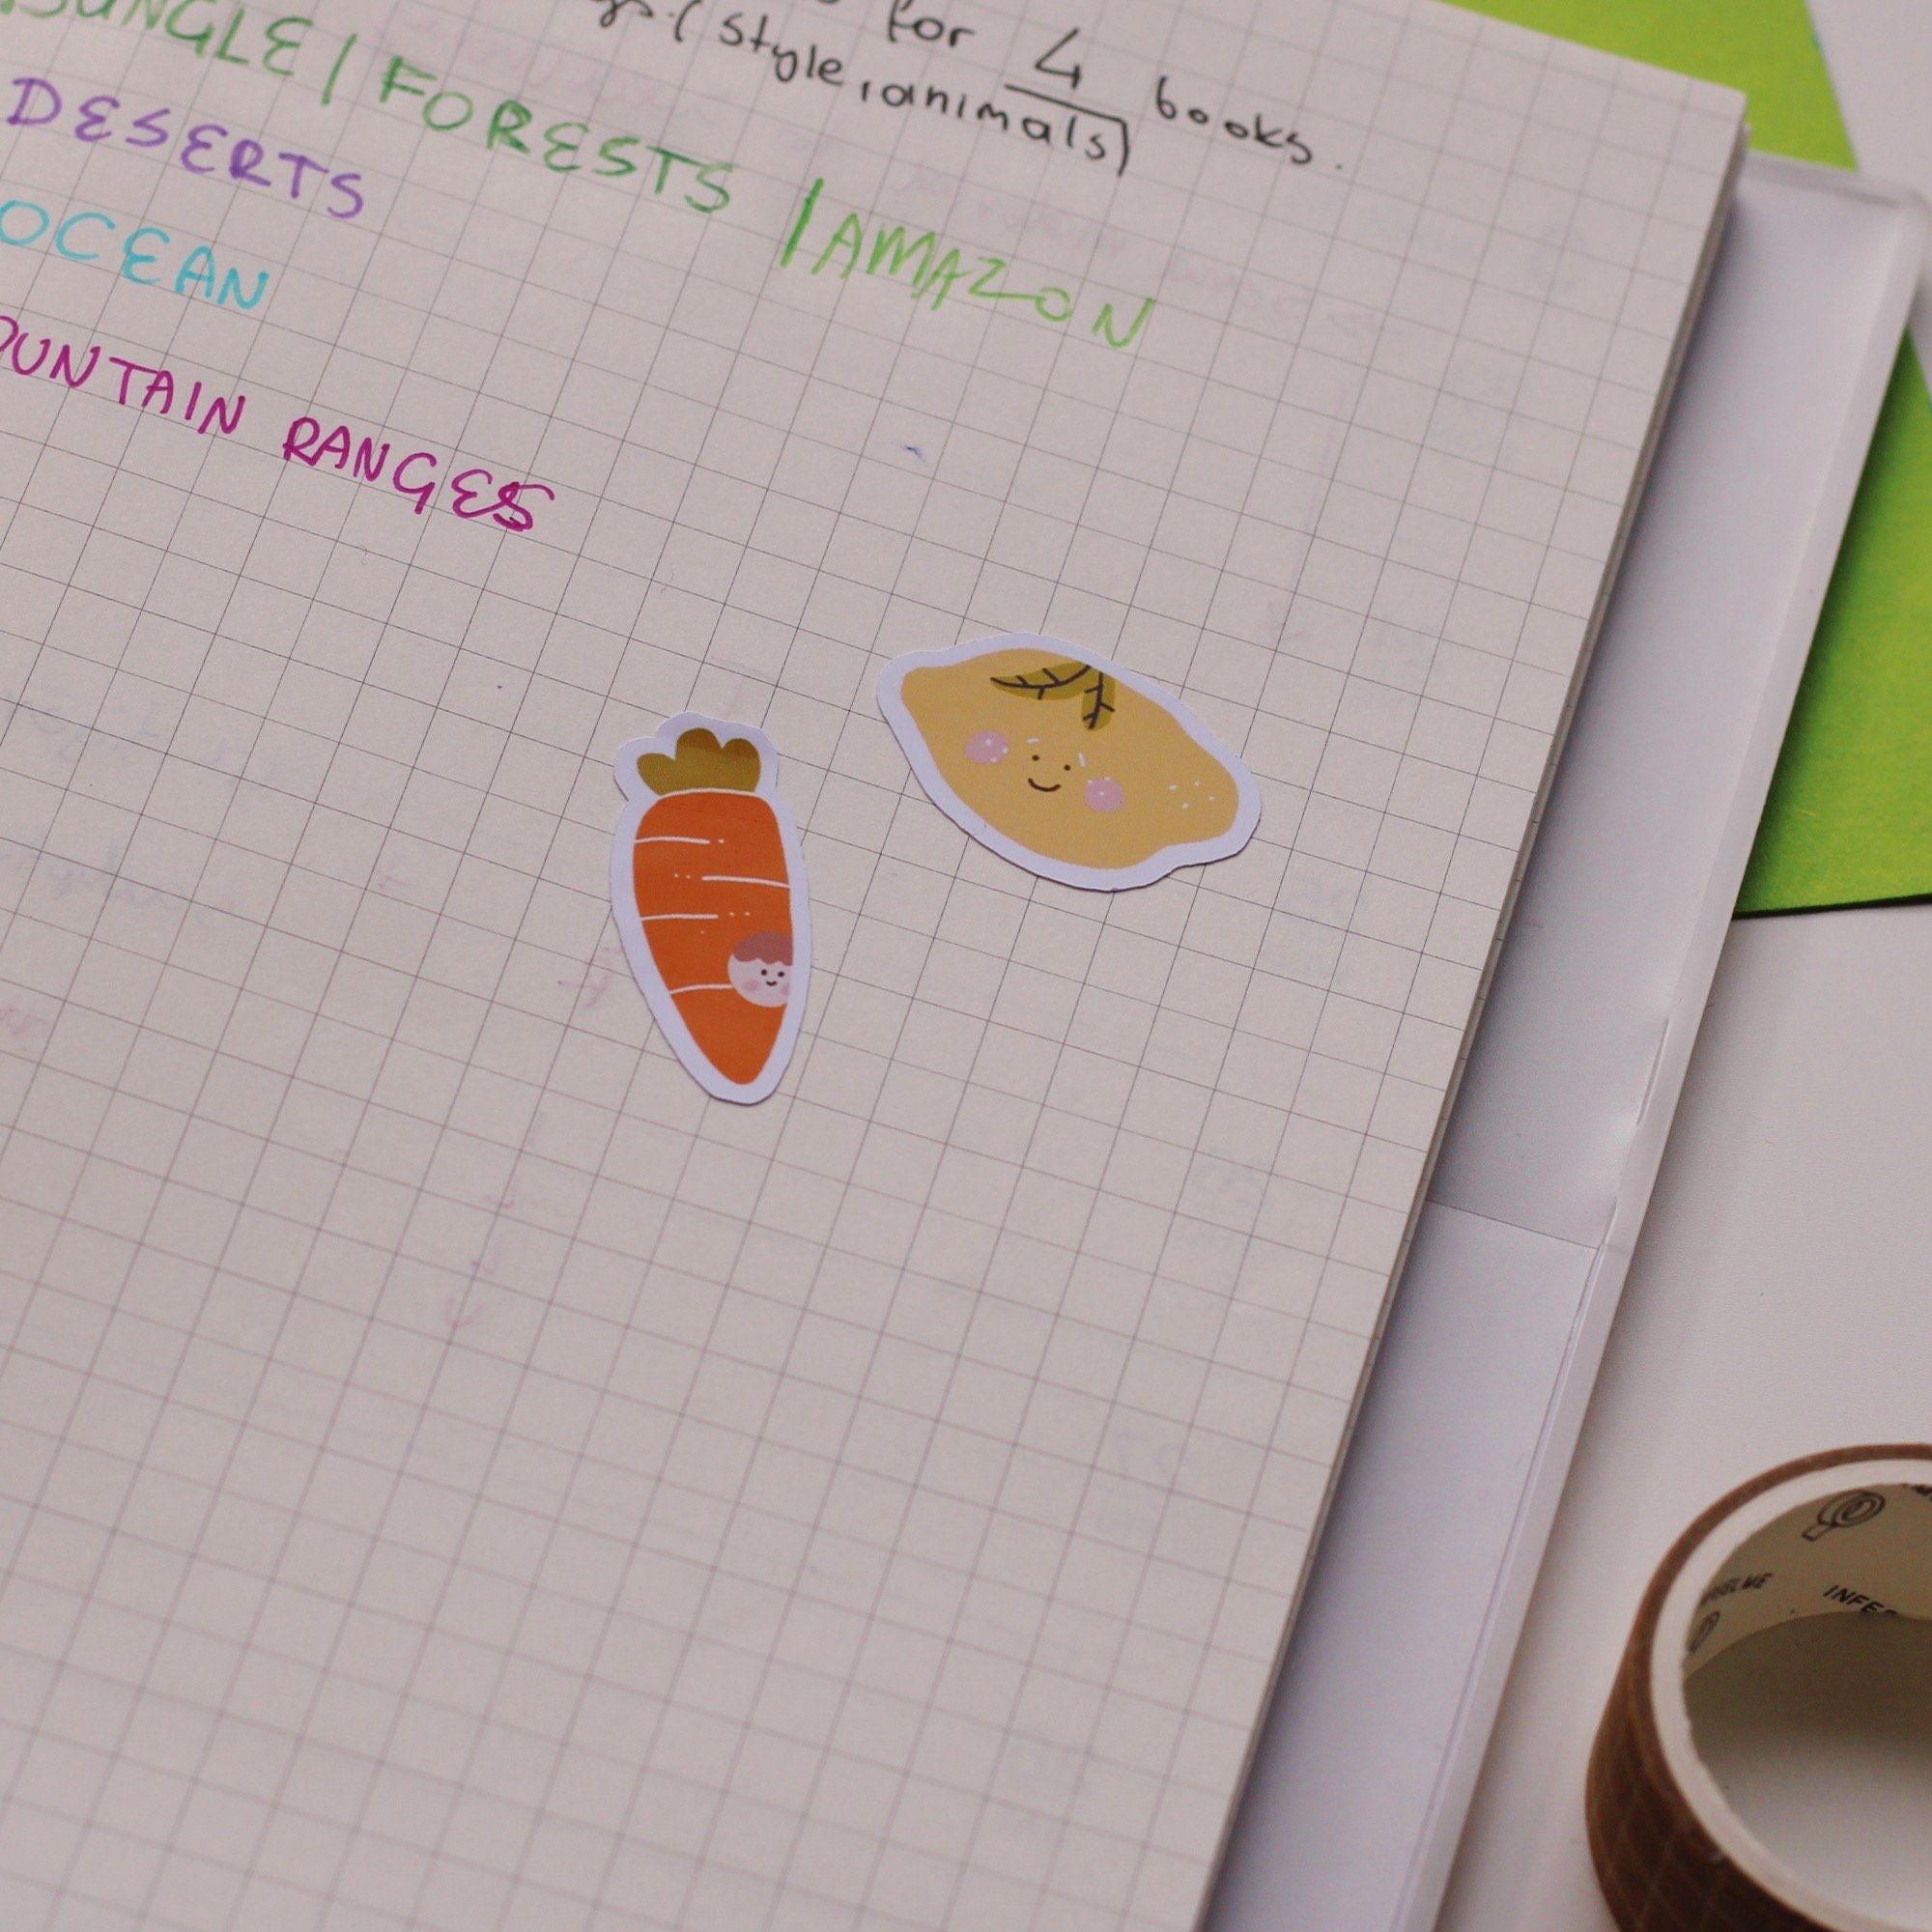 for 4 books.
(style, animals)
JUNGLE / FORESTS / AMAZON
DESERTS
OCEAN
OUNTAIN RANGES